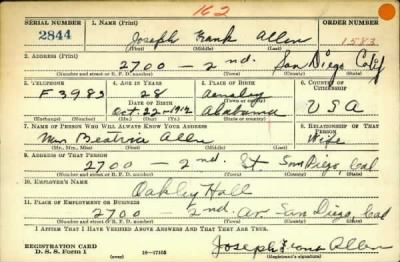 162
SERIAL NUMBER 1. NAME (Print) ORDER NUMBER
2844 Joseph Frank Allen 1583
(First) (Middle) (Last)
2. ADDRESS (Print)
2700 — 2nd. San Diego Calif
(Number and street or R. F. D. number) (Town) (County) (State)
3. TELEPHONE 4. AGE IN YEARS 5. PLACE OF BIRTH 6. COUNTRY OF CITIZENSHIP
F 3983 28
DATE OF BIRTH (Town or county)
Oct. 22-1912 Alabama USA
(Exchange) (Number) (Mo.) (Day) (Yr.) (State or country)
7. NAME OF PERSON WHO WILL ALWAYS KNOW YOUR ADDRESS 8. RELATIONSHIP OF THAT PERSON
Mrs Beatrice Allen Wife
(Mr., Mrs., Miss) (First) (Middle) (Last)
9. ADDRESS OF THAT PERSON
2700 — 2nd. St. San Diego Cal
(Number and street or R. F. D. number) (Town) (County) (State)
10. EMPLOYER'S NAME
Oakley Hall
11. PLACE OF EMPLOYMENT OR BUSINESS
2700 — 2nd av. San Diego Cal
(Number and street or R. F. D. number) (Town) (County) (State)
I AFFIRM THAT I HAVE VERIFIED ABOVE ANSWERS AND THAT THEY ARE TRUE.
REGISTRATION CARD
D. S. S. Form 1 16-17105 Joseph Frank Allen
(Registrant's signature)